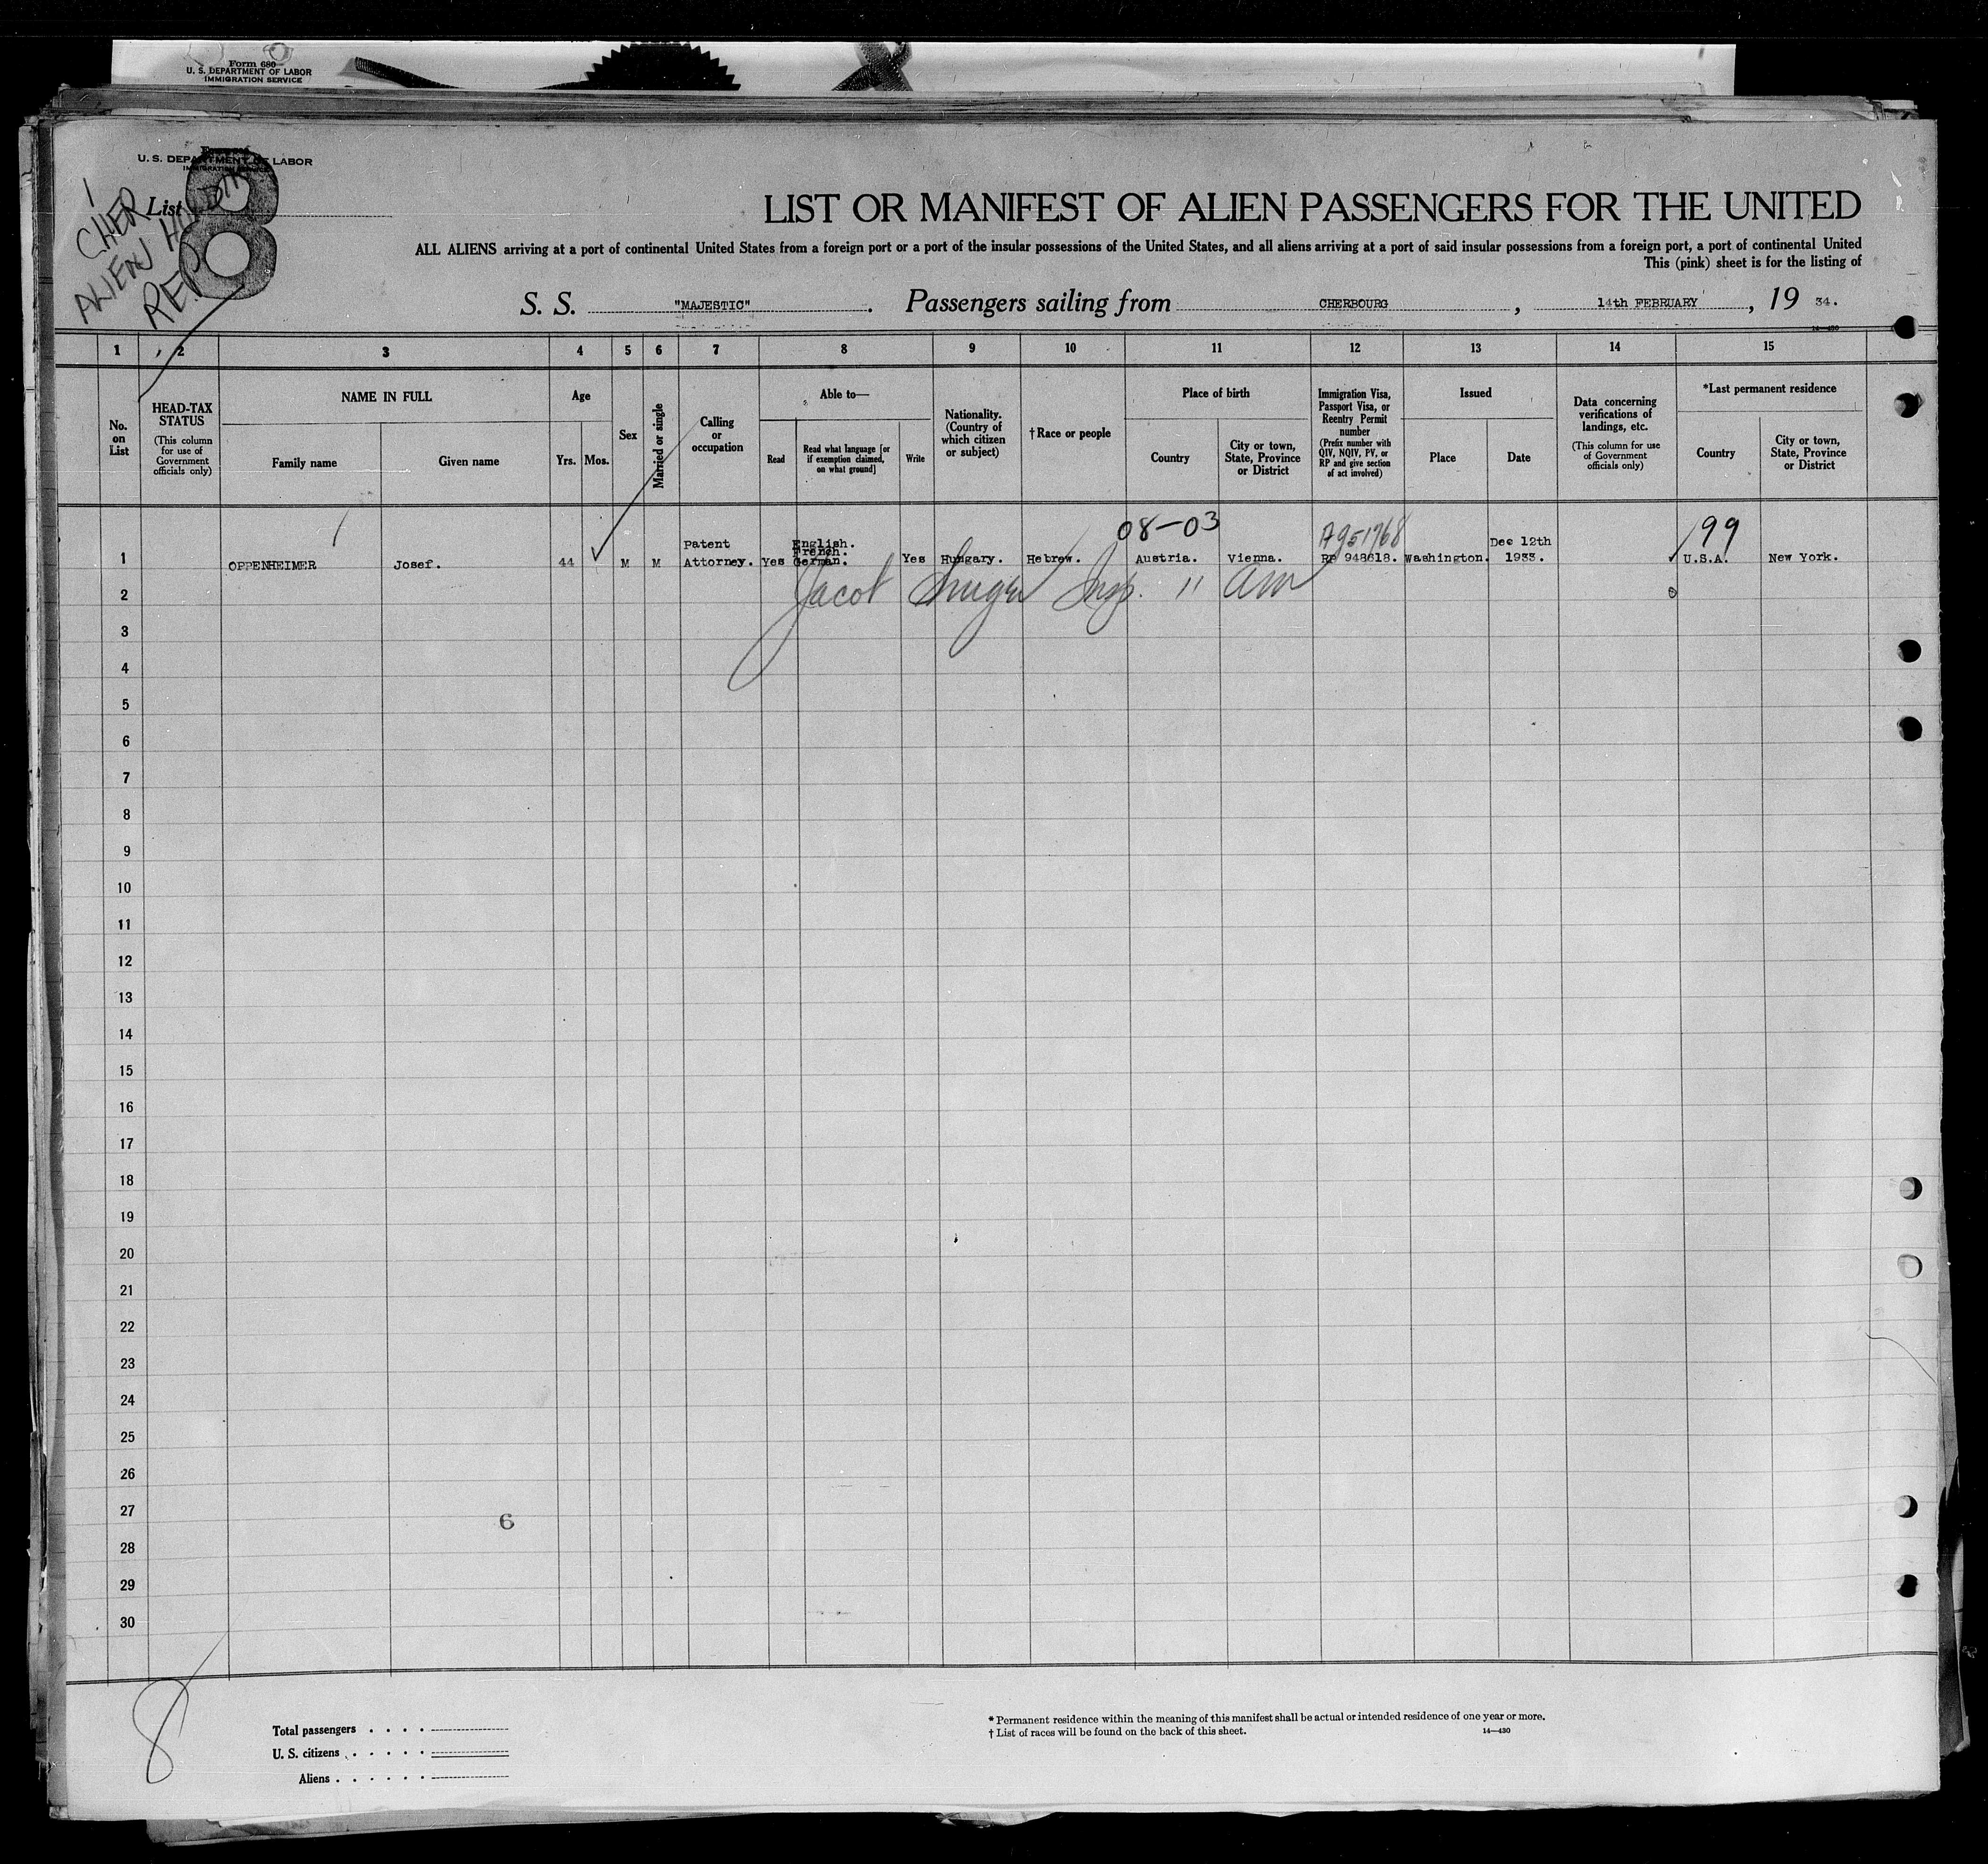 Form 680
U. S. DEPARTMENT OF LABOR
IMMIGRATION SERVICE
U. S. DEPARTMENT OF LABOR
IMMIGRATION SERVICE
1
CHER
ALIEN
REP
List
8
LIST OR MANIFEST OF ALIEN PASSENGERS FOR THE UNITED
ALL ALIENS arriving at a port of continental United States from a foreign port or a port of the insular possessions of the United States, and all aliens arriving at a port of said insular possessions from a foreign port, a port of continental United
This (pink) sheet is for the listing of
S. S. "MAJESTIC". Passengers sailing from CHERBOURG, 14th FEBRUARY, 19 34.
14—430
1 2 3 4 5 6 7 8 9 10 11 12 13 14 15
No. on List
HEAD-TAX STATUS
(This column for use of Government officials only)
NAME IN FULL
Family name
Given name
Age
Yrs.
Mos.
Sex
Married or single
Calling or occupation
Able to—
Read
Read what language [or if exemption claimed, on what ground]
Write
Nationality. (Country of which citizen or subject)
†Race or people
Place of birth
Country
City or town, State, Province or District
Immigration Visa, Passport Visa, or Reentry Permit number
(Prefix number with QIV, NQIV, PV, or RP and give section of act involved)
Issued
Place
Date
Data concerning verifications of landings, etc.
(This column for use of Government officials only)
*Last permanent residence
Country
City or town, State, Province or District
08-03
199
1 OPPENHEIMER Josef. 44 M M Patent Attorney. Yes English. French. German. Yes Hungary. Hebrew. Austria. Vienna. RP 948618. Washington. Dec 12th 1933. U.S.A. New York.
2 Jacob Insp. 11 am
3
4
5
6
7
8
9
10
11
12
13
14
15
16
17
18
19
20
21
22
23
24
25
26
27
6
28
29
30
8
Total passengers
U. S. citizens
Aliens
* Permanent residence within the meaning of this manifest shall be actual or intended residence of one year or more.
† List of races will be found on the back of this sheet. 14—430